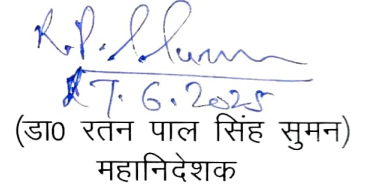 R.P. Suman
27.6.2025
(डा0 रतन पाल सिंह सुमन)
महानिदेशक